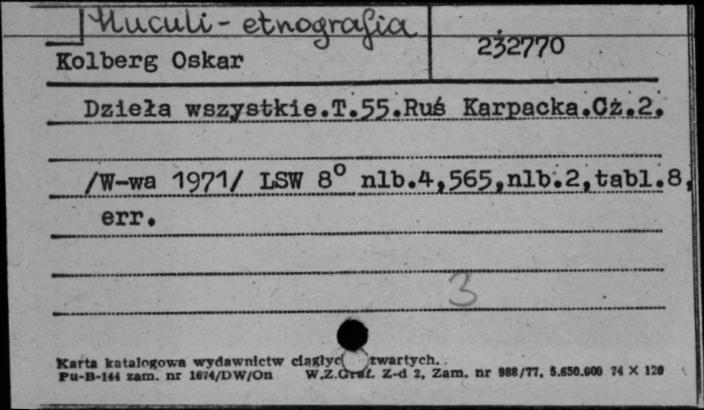 Huculi - etnografia
232770
Kolberg Oskar
Dzieła wszystkie.T.55.Ruś Karpacka.Cż.2.
/W-wa 1971/ LSW 8° nlb.4,565,nlb.2,tabl.8,
err.
3
Karta katalogowa wydawnictw ciągłyc zwartych.
Pu-B-144 zam. nr 1674/DW/On W.Z.Graf. Z-d 2, Zam. nr 988/77. 5.650.600 74 X 120